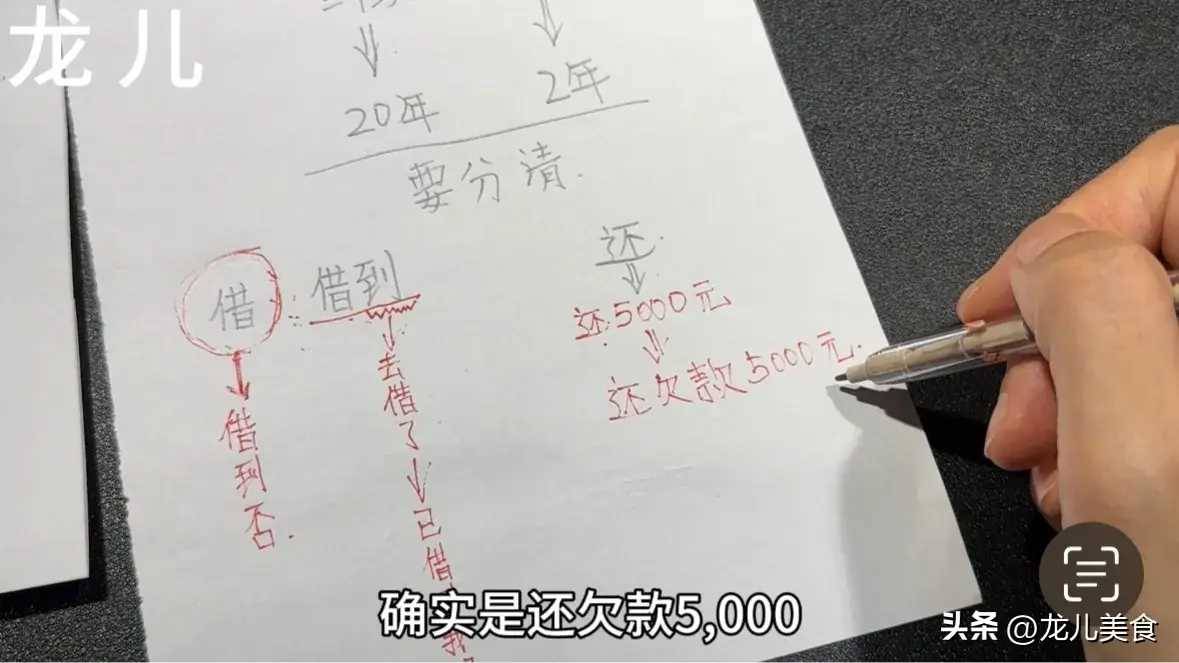 龙儿
20年
2年
要分清.
借
借到
还.
去借了
还5000元
还欠款5000元.
借到否.
已借
确实是还欠款5,000
头条 @龙儿美食